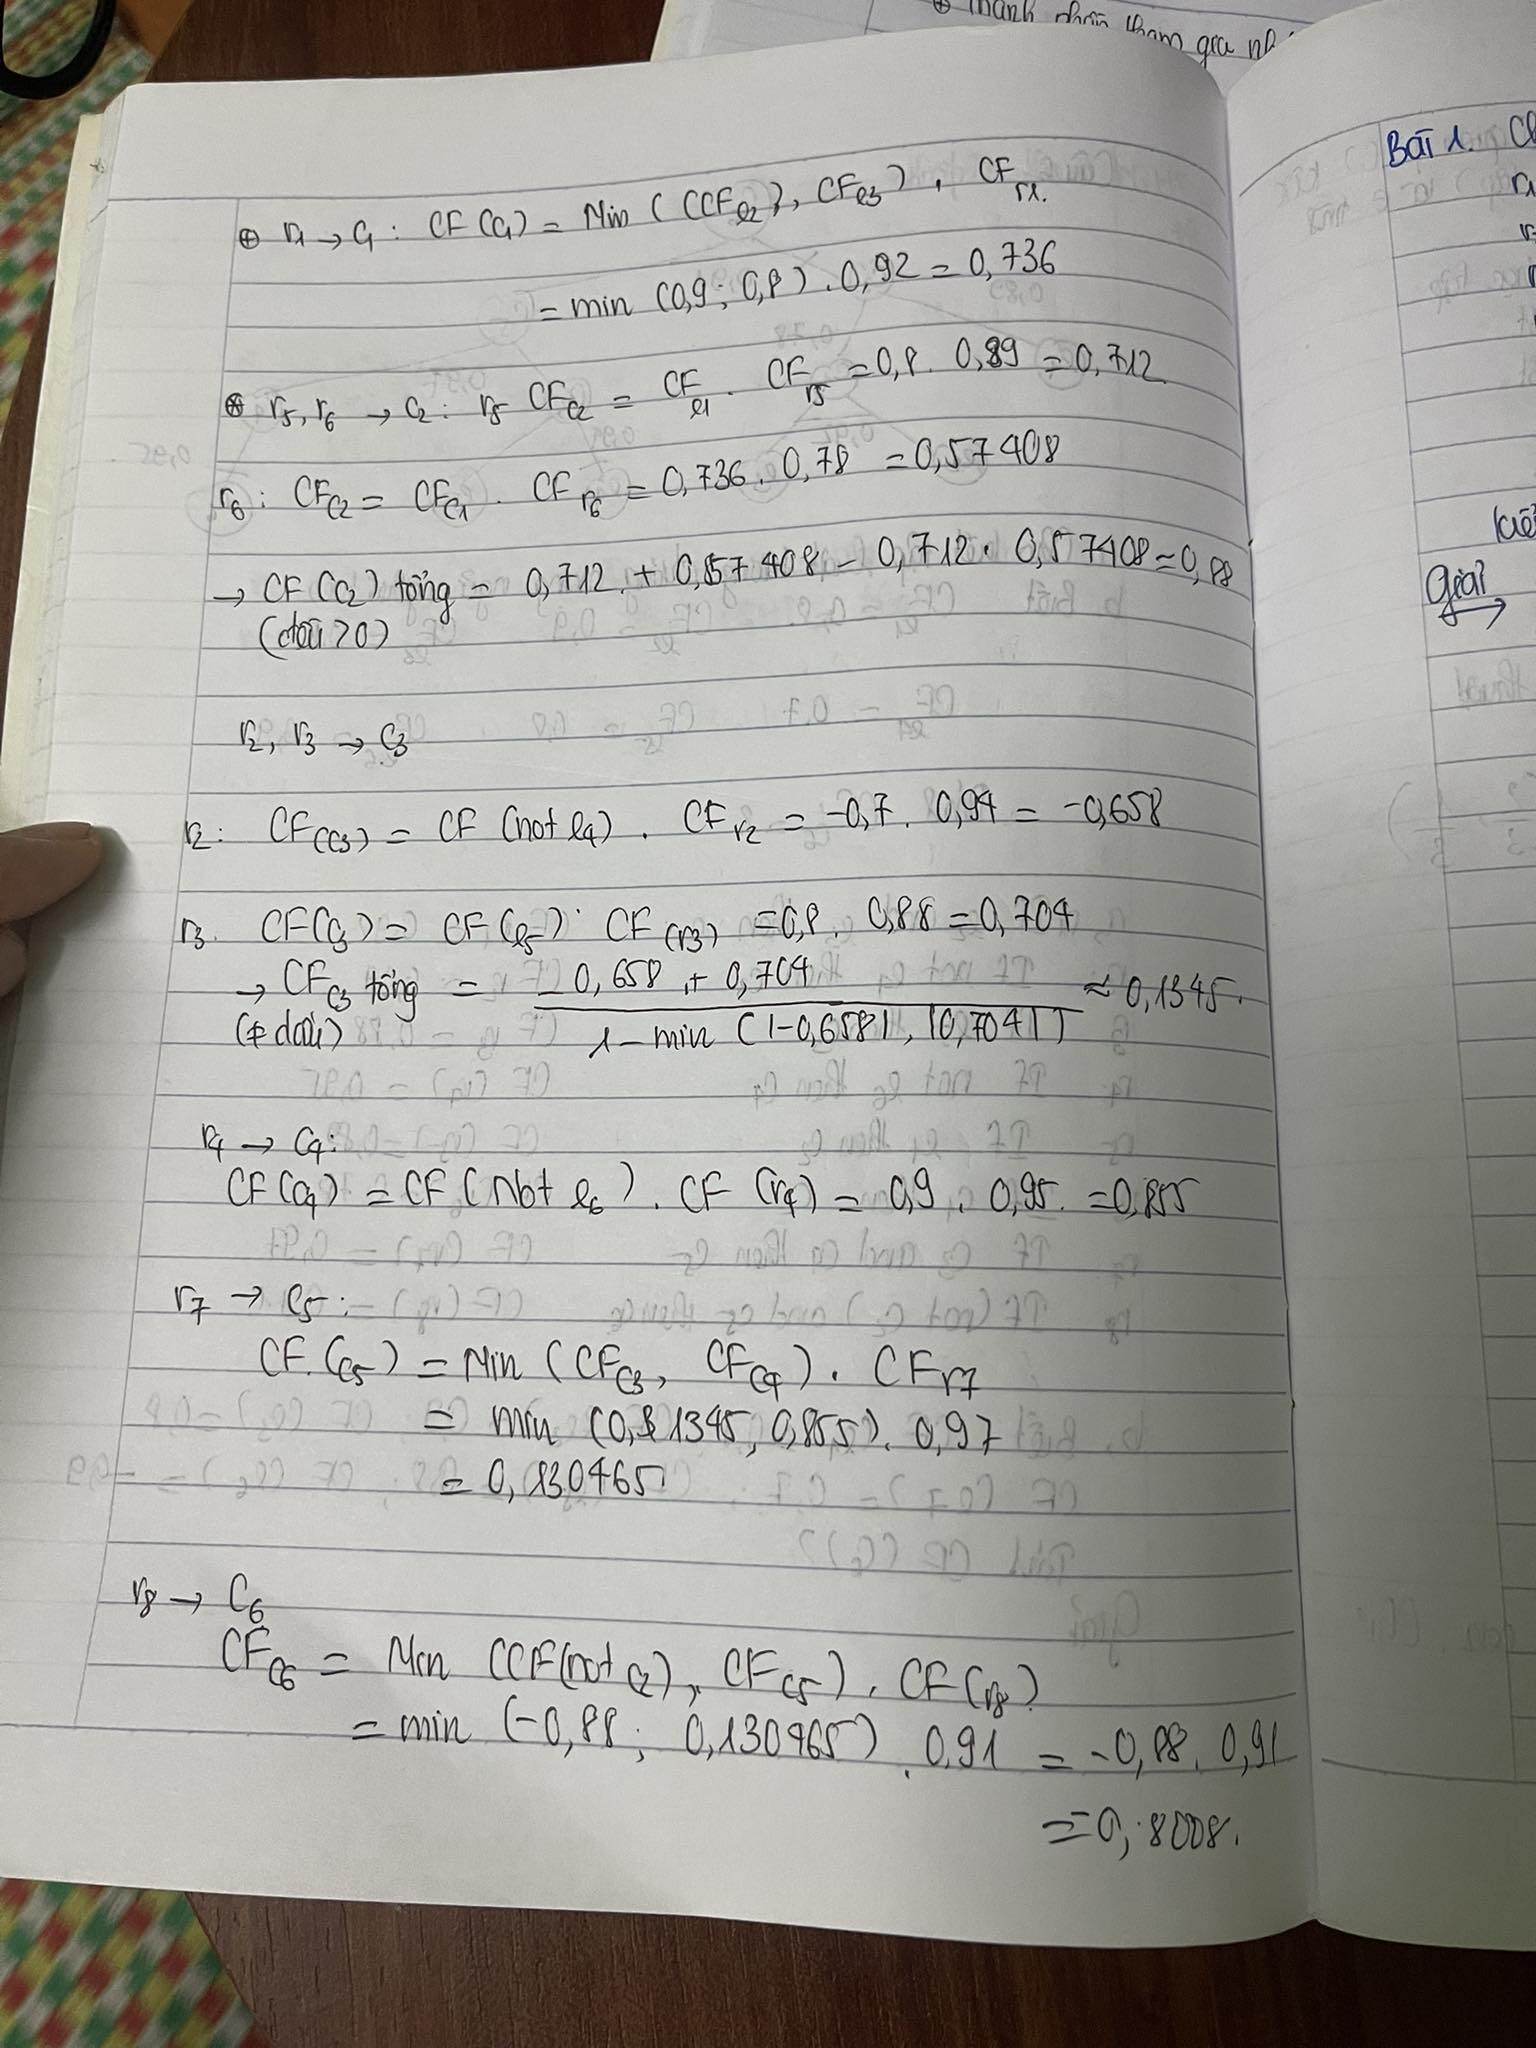 ⊕ thành phần tham gia
⊕ r1 → C1 : CF(C1) = Min (CCFe2), CFe3) . CFr1.
= min (0,9 ; 0,8) . 0,92 = 0,736
⊛ r5, r6 → C2 : r5 CFC2 = CFe1 . CFr5 = 0,8 . 0,89 = 0,712
r6 : CFC2 = CFC1 . CFr6 = 0,736 . 0,78 = 0,57408
→ CF(C2) tổng = 0,712 + 0,57408 – 0,712 . 0,57408 = 0,88
(đều >0)
r2, r3 → C3
r2 : CF(C3) = CF (not e4) . CFr2 = -0,7 . 0,94 = -0,658
r3. CF(C3) = CF(e5) . CF(r3) = 0,8 . 0,88 = 0,704
→ CFC3 tổng = -0,658 + 0,704 / 1 – min (|-0,658|, |0,704|) ≈ 0,1345.
(≠ dấu)
r4 → C4 :
CF(C4) = CF(Not e6) . CF(r4) = 0,9 . 0,95. = 0,855
r7 → C5 :
CF.(C5) = Min (CFC3, CFC4) . CFr7
= min (0,1345, 0,855) . 0,97
= 0,130465.
r8 → C6
CFC6 = Min CCF(not C2), CFC5) . CF(r8)
= min (-0,88 ; 0,130465) . 0,91 = -0,88 . 0,91
= 0,8008.
Bài 1.
r1
Giải
→